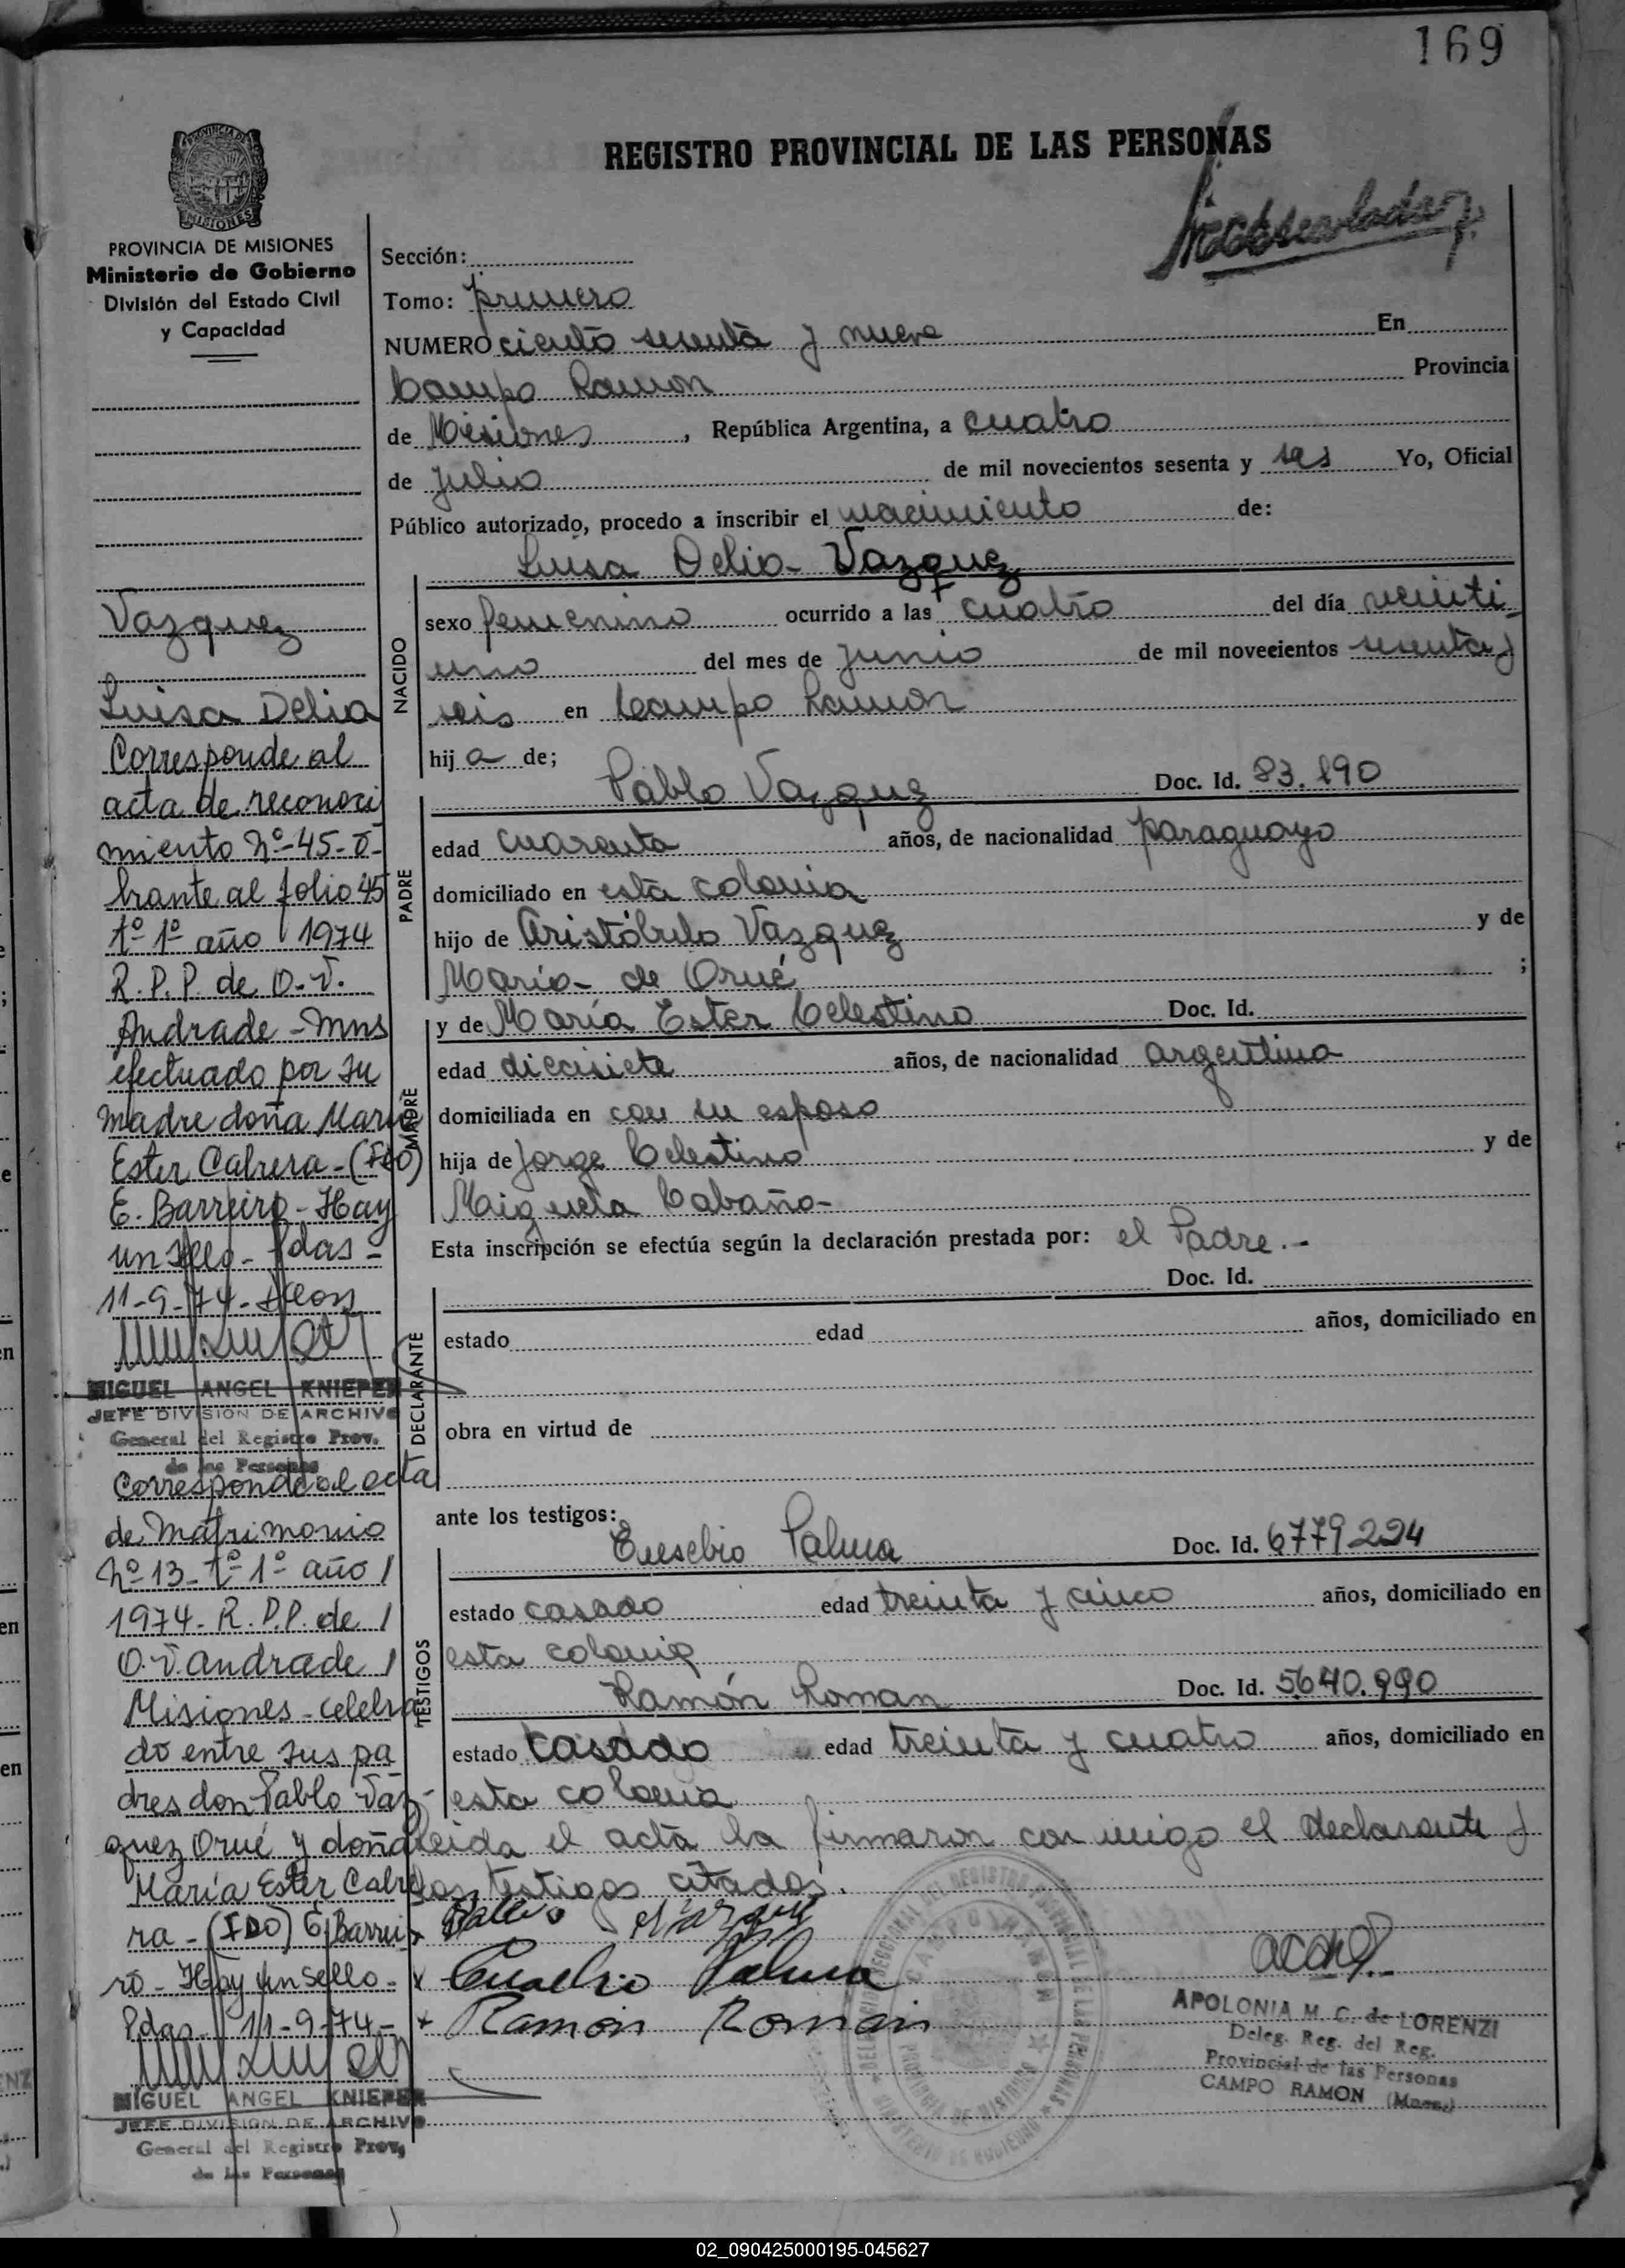 169
REGISTRO PROVINCIAL DE LAS PERSONAS
PROVINCIA DE MISIONES
Ministerio de Gobierno
División del Estado Civil
y Capacidad
Sección:
Tomo: primero
NUMERO ciento sesenta y nueve En
Campo Ramon Provincia
de Misiones, República Argentina, a cuatro
de julio de mil novecientos sesenta y seis Yo, Oficial
Público autorizado, procedo a inscribir el nacimiento de:
Luisa Delia- Vazquez
NACIDO
sexo femenino ocurrido a las cuatro del día veinti
uno del mes de junio de mil novecientos sesenta y
seis en Campo Ramon
hij a de;
Pablo Vazquez Doc. Id. 83.190
PADRE
edad cuarenta años, de nacionalidad paraguayo
domiciliado en esta colonia
hijo de Aristóbulo Vazquez y de
María- de Orué ;
y de María Ester Celestino Doc. Id.
MADRE
edad diecisiete años, de nacionalidad argentina
domiciliada en con su esposo
hija de Jorge Celestino y de
Miguela Cabaña-
Esta inscripción se efectúa según la declaración prestada por: el Padre.-
Doc. Id.
DECLARANTE
estado edad años, domiciliado en
obra en virtud de
ante los testigos:
Eusebio Palma Doc. Id. 6779224
TESTIGOS
estado casado edad treinta y cinco años, domiciliado en
esta colonia
Ramón Roman Doc. Id. 5640.990
estado casado edad treinta y cuatro años, domiciliado en
esta colonia
leida el acta la firmaron conmigo el declarante y
los testigos citados.
Pablo Vazquez
Eusebio Palma
Ramón Roman
APOLONIA M. C. de LORENZI
Deleg. Reg. del Reg.
Provincial de las Personas
CAMPO RAMON (Mnes.)
CAMPO RAMON
PROVINCIA DE MISIONES
Vazquez
Luisa Delia
Corresponde al
acta de reconoci
miento Nº-45-O-
brante al folio 45
tº 1º año 1974
R.P.P. de O.V.
Andrade - Mns
efectuado por su
madre doña María
Ester Cabrera - (FDO)
E. Barreiro - Hay
un sello - Pdas -
11-9-74-
MIGUEL ANGEL KNIEPER
JEFE DIVISION DE ARCHIVO
General del Registro Prov.
de las Personas
Corresponde al acta
de Matrimonio
Nº 13-tº 1º año /
1974- R.P.P. de /
O.V. Andrade /
Misiones - celebra
do entre sus pa
dres don Pablo Váz-
quez Orué y doña
María Ester Cabre
ra - (FDO) E. Barrei
ro - Hay un sello -
Pdas 11-9-74-
MIGUEL ANGEL KNIEPER
JEFE DIVISION DE ARCHIVO
General del Registro Prov,
de las Personas
02_090425000195-045627